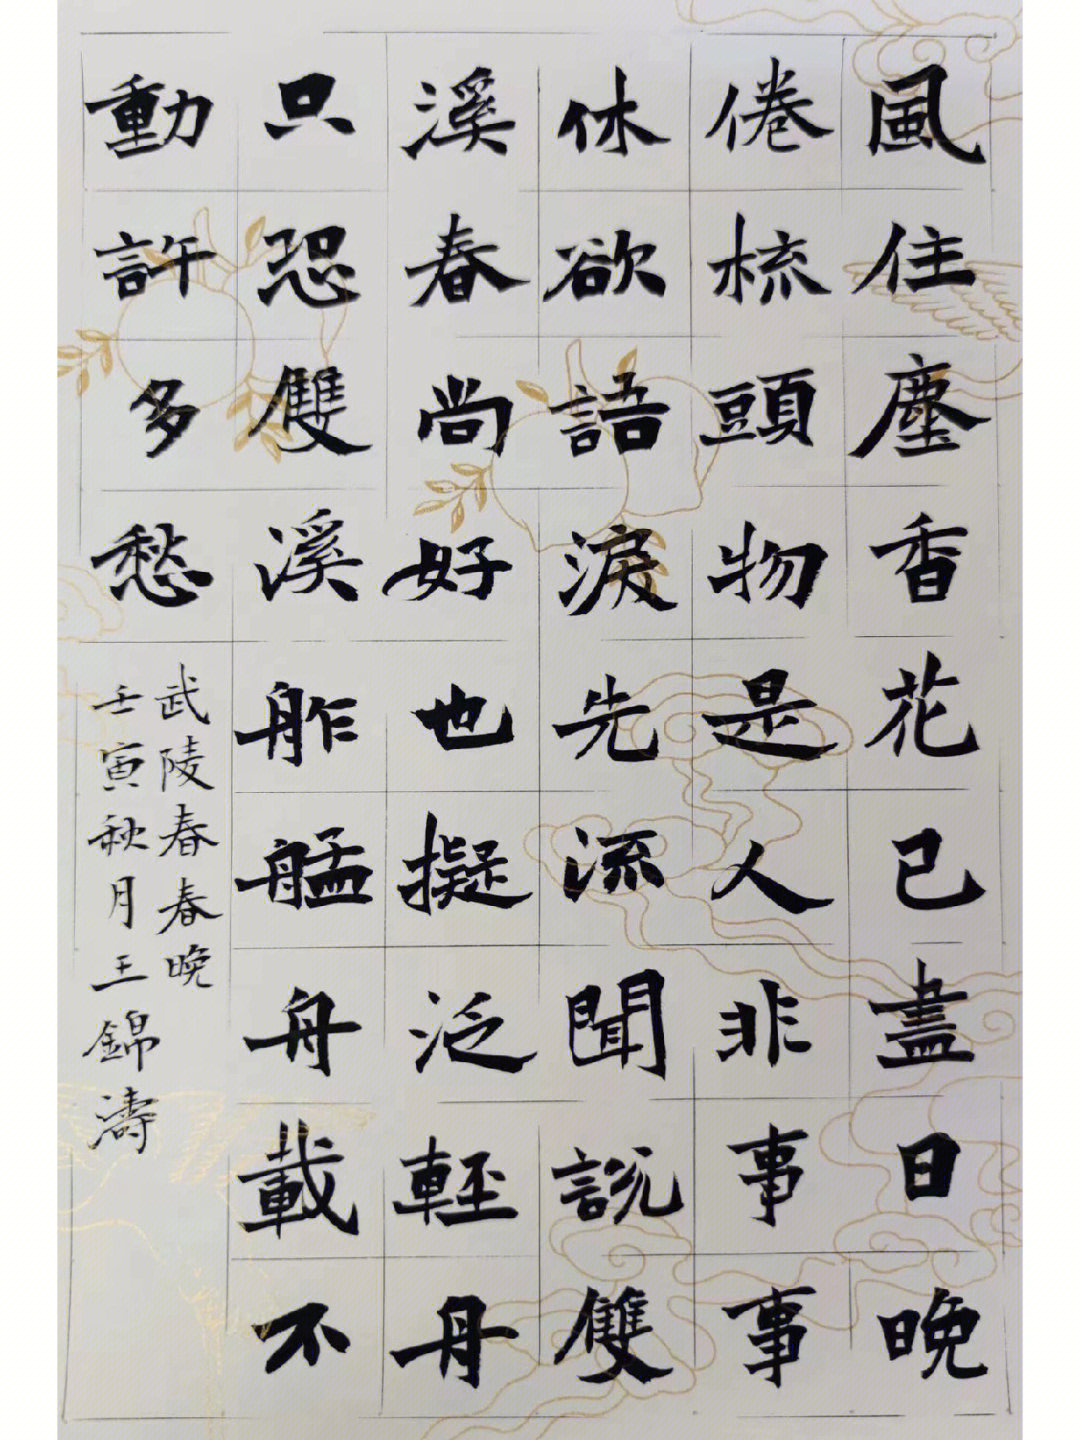 風住塵香花已盡日晚
倦梳頭物是人非事事
休欲語淚先流聞説雙
溪春尚好也擬泛輕舟
只恐雙溪舴艋舟載不
動許多愁
武陵春春晚
壬寅秋月王錦濤